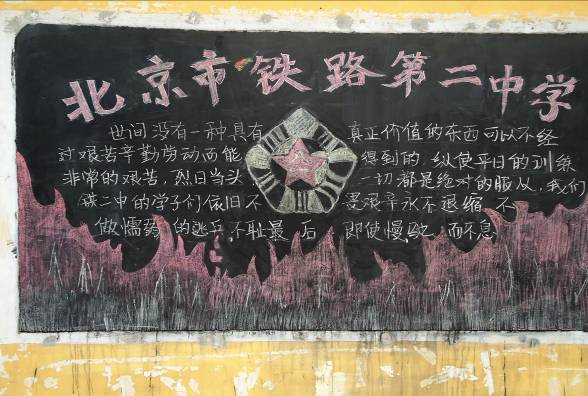 北京市铁路第二中学
世间没有一种具有真正价值的东西可以不经
过艰苦辛勤劳动而能得到的，纵使平日的训练
非常的艰苦，烈日当头一切都是绝对的服从，我们
铁二中的学子们依旧不畏艰辛永不退缩 不
做懦弱的逃兵，不耻最后 即使慢，驰而不息